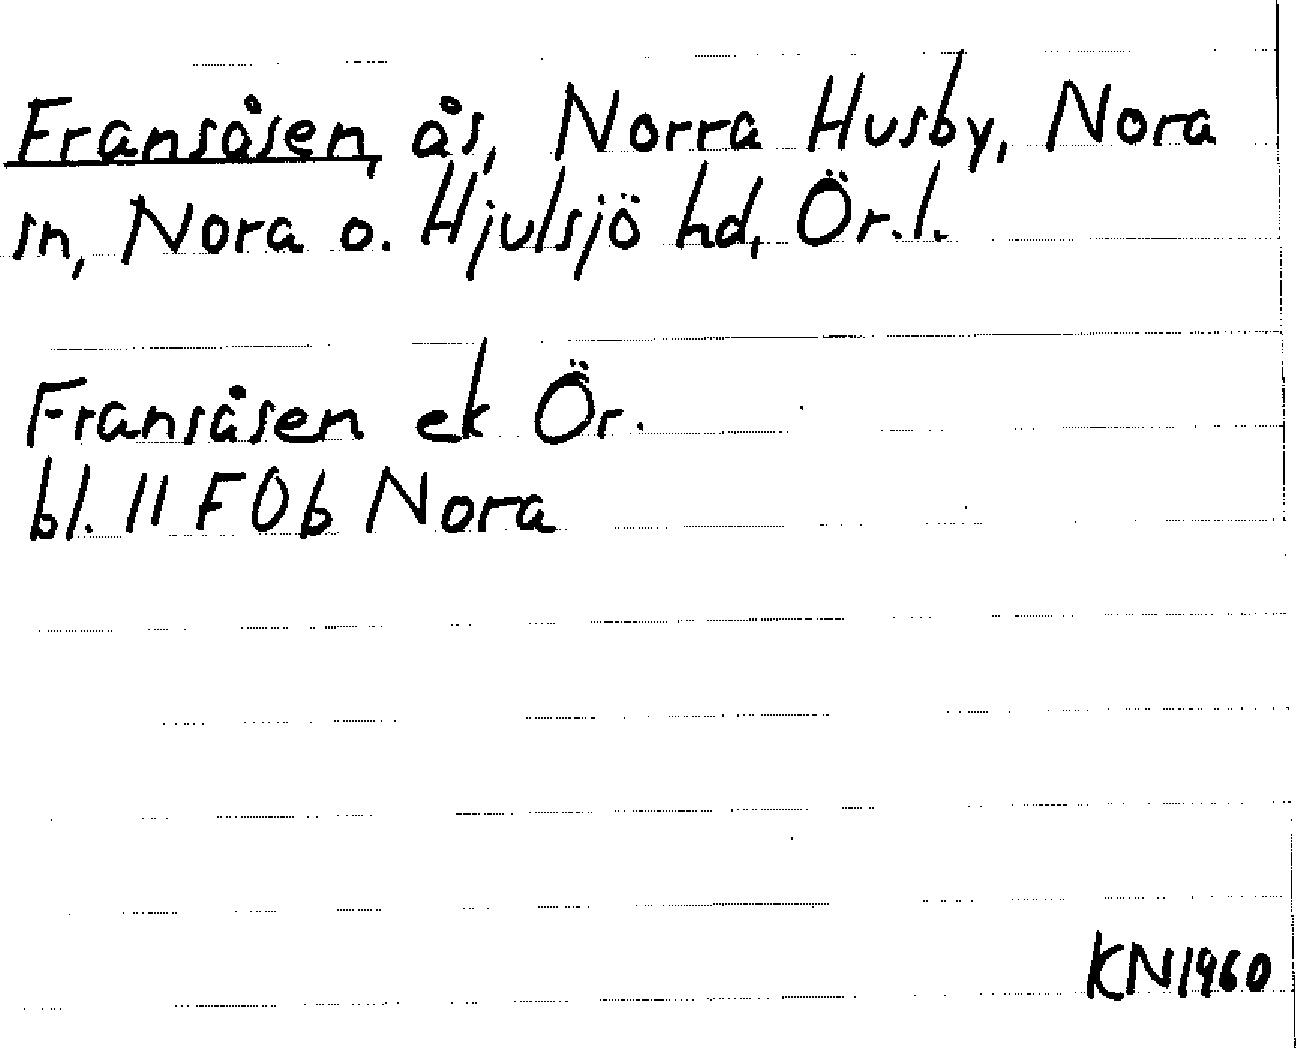 Fransåsen, ås, Norra Husby, Nora
sn, Nora o. Hjulsjö hd, Ör.l.
Fransåsen ek Ör.
bl. 11 F 0b Nora
KN1960